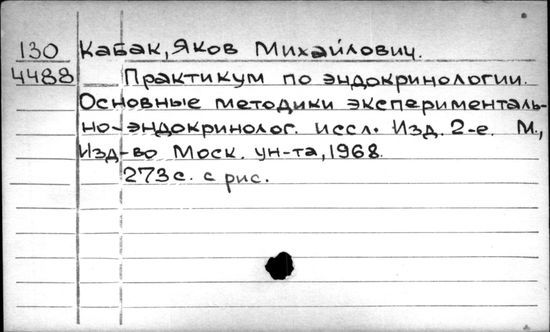 130 Кабак, Яков Михайлович.
4488 Практикум по эндокринологии.
Основные методики эксперименталь-
но-эндокринолог. иссл. Изд. 2-е. М.,
Изд-во Моск. ун-та, 1968.
273 с. с рис.